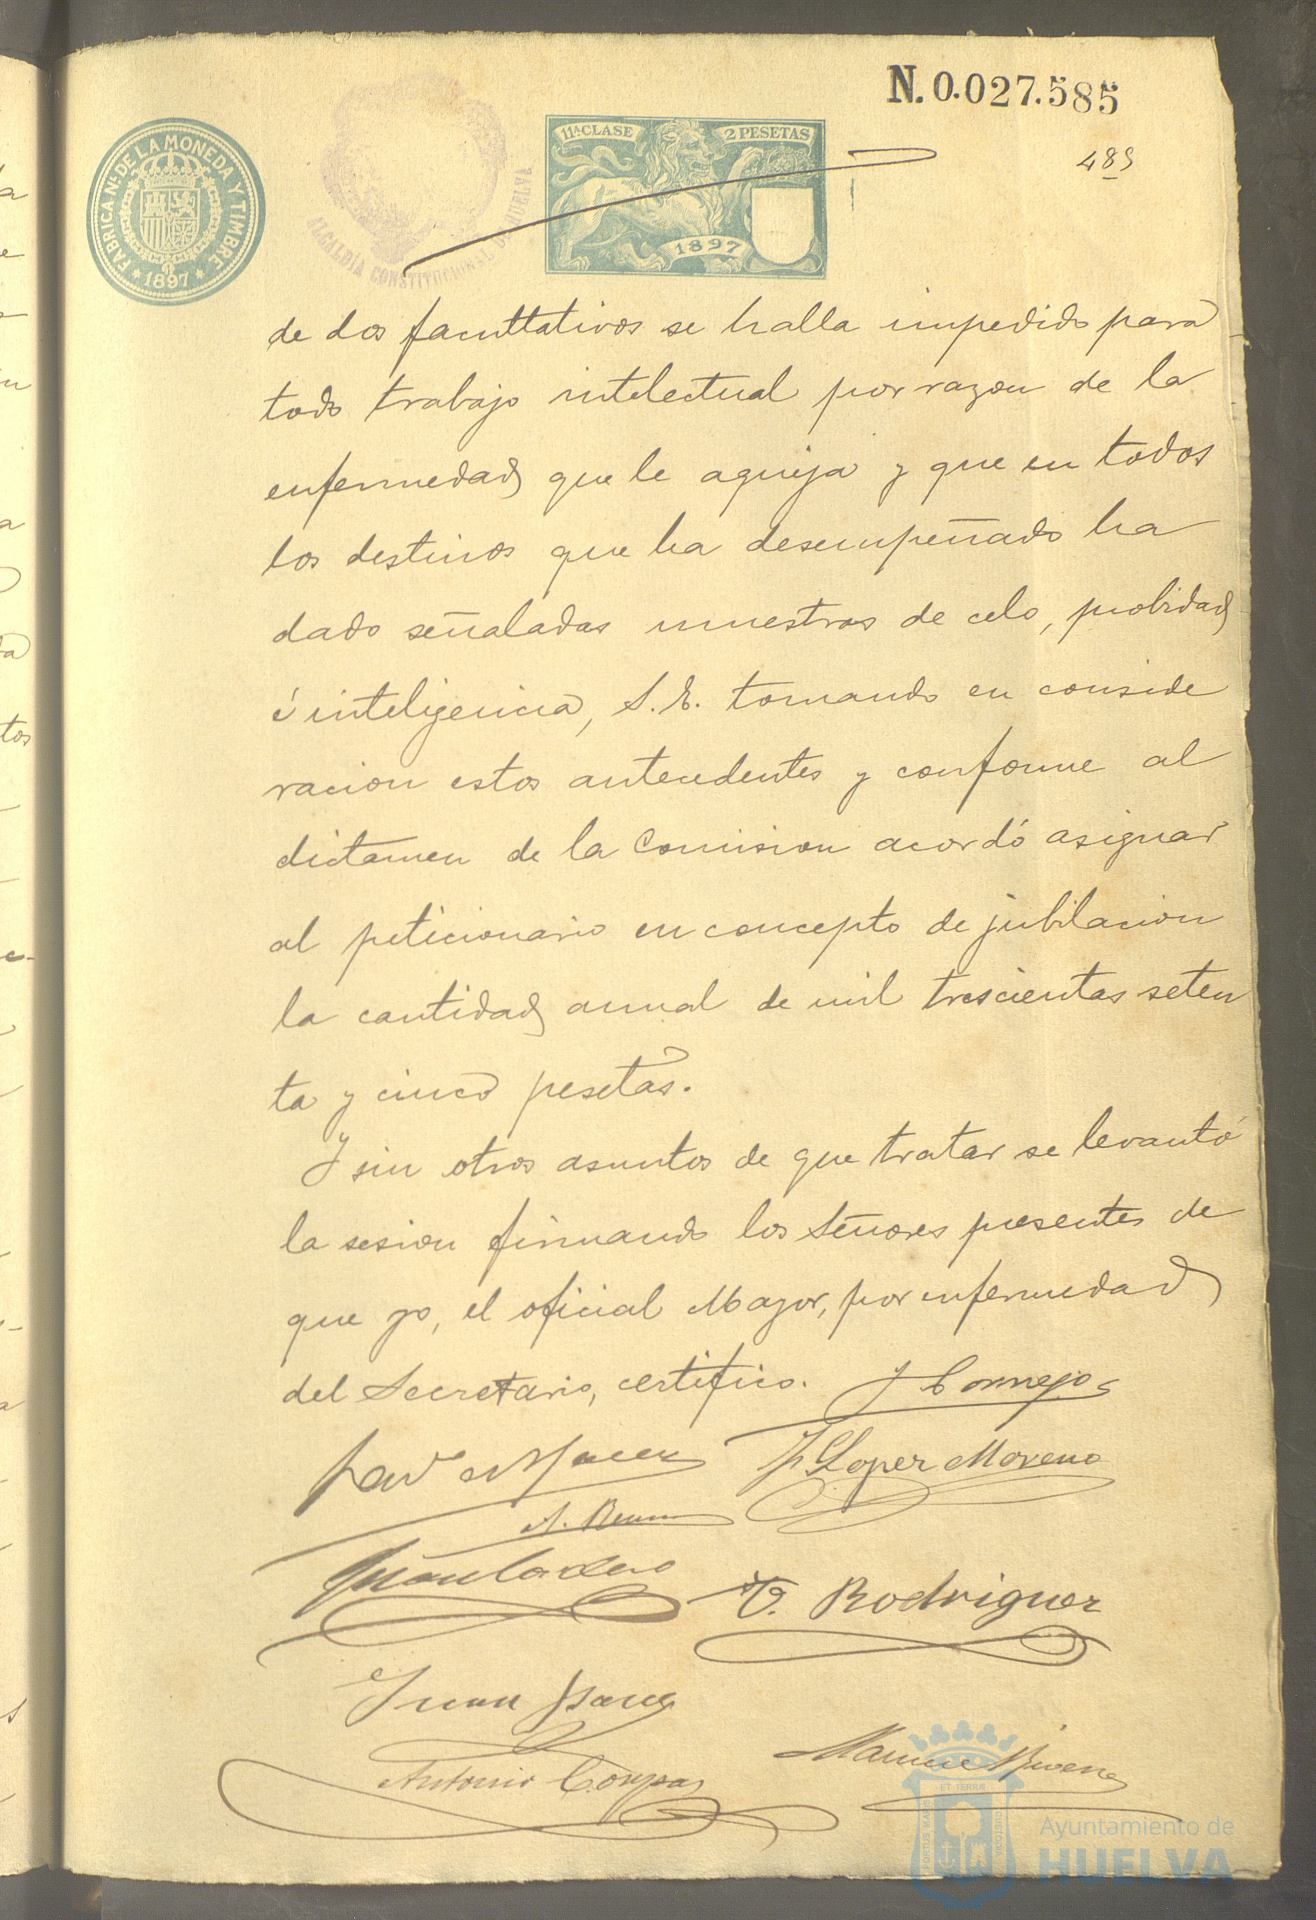 N. 0.027.585
489
11ª CLASE
2 PESETAS
1897
FABRICA Nˡ DE LA MONEDA Y TIMBRE
* 1897 *
ALCALDÍA CONSTITUCIONAL DE HUELVA
de dos facultativos se halla impedido para
todo trabajo intelectual por razon de la
enfermedad que le aqueja y que en todos
los destinos que ha desempeñado ha
dado señaladas muestras de celo, probidad
é inteligencia, S.E. tomando en conside
racion estos antecedentes y conforme al
dictamen de la Comision acordó asignar
al peticionario en concepto de jubilacion
la cantidad anual de mil trescientas seten
ta y cinco pesetas.
Y sin otros asuntos de que tratar se levantó
la sesion firmando los Señores presentes de
que yo, el oficial Mayor, por enfermedad
del Secretario, certifico.
J Cornejo
J. Lopez Moreno
V. Rodriguez
Juan
Antonio
Ayuntamiento de
HUELVA